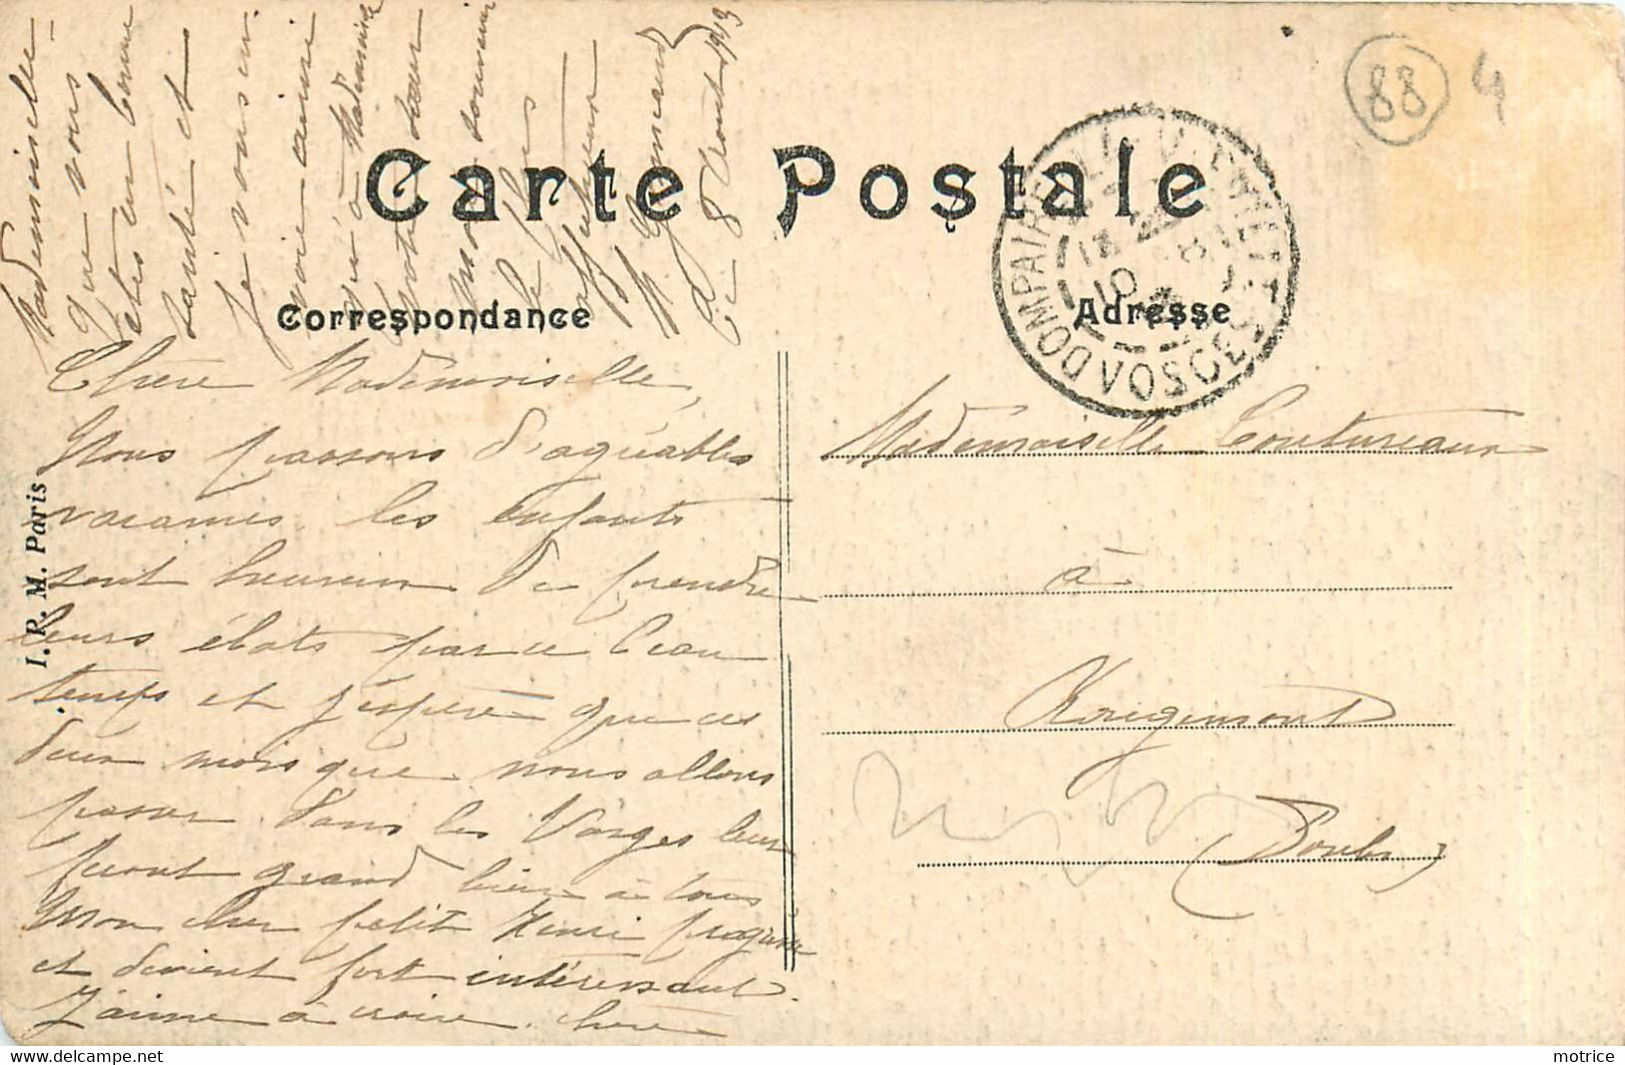 Carte Postale
Correspondance
Adresse
I. P. M. Paris
88
4
DOMPAIRE
VOSGES
Chère Mademoiselle,
Nous passons d'agréables
vacances. les enfants
sont heureux de prendre
leurs ébats par ce beau
temps et j'espère que ces
deux mois que nous allons
passer dans les Vosges leur
feront grand bien à tous
Mon cher petit Henri progresse
et devient fort intéressant.
J'aime à croire, chère
Mademoiselle
que vous
êtes en bonne
santé et
je vous en
voie ainsi
qu'à Mademoiselle
votre sœur
mon souvenir
le plus
affectueux
8 Août 1913
Mademoiselle Coutureaux
à
Rougemont
(Doubs)
motrice